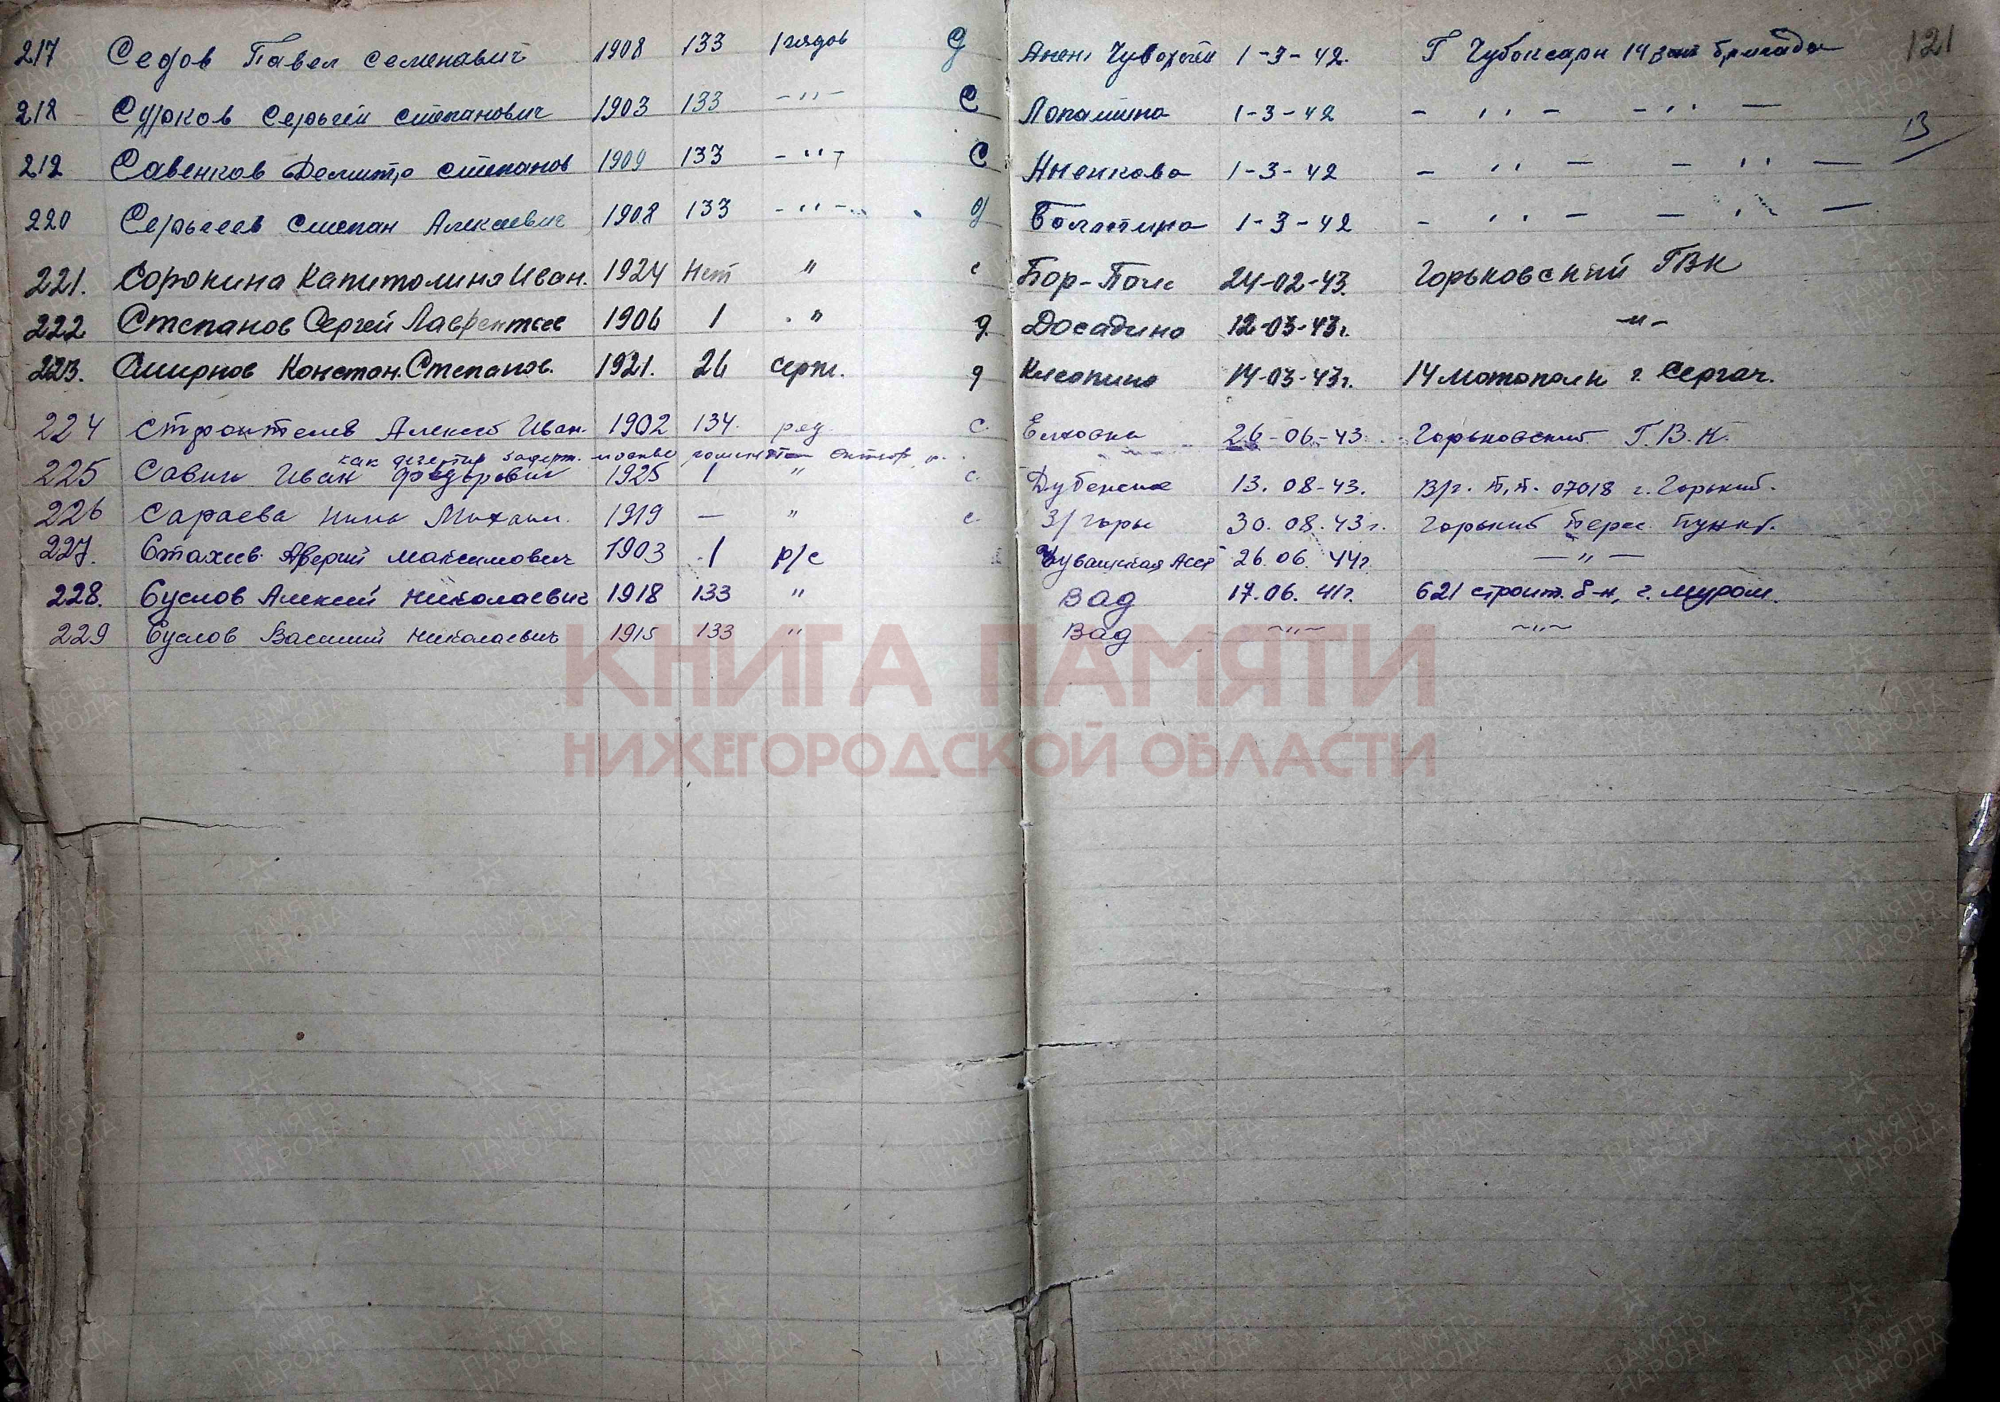 121
217 Седов Павел Семенавич 1908 133 рядов Д 1-3-42. Г Чубоксары 14 зап бригада
218 Сурков Сергей Степанович 1903 133 -"- С Лопатино 1-3-42 - " - - " -
13
219 Савенков Демитр Степанов 1909 133 -"- С Ананково 1-3-42 - " - - " -
220 Сергеев Степан Алексеевич 1908 133 -"- Д Болотино 1-3-42 - " - - " -
221. Сорокина Капитолина Иван. 1924 Нет " с Бор-Поле 24-02-43. Горьковский ГВК
222 Степанов Сергей Лаврентьев 1906 1 " д. Досадино 12-03-43г. -"-
223. Смирнов Констан. Степанов. 1921. 26 серж. д 14-03-43г. 14 мотополк г. Сергач.
224 Строителев Алексей Иван. 1902 134. ряд. с. Елховка 26-06-43. Горьковский Г.В.К.
как дезертир задерж.
225 Савин Иван Федорович 1925 1 " с. Дубенское 13.08-43. В/ч. П.П. 07018 г. Горький.
226 Сараева Нина Михаил. 1919 — " с. 3/Горы 30.08.43г. Горький Перес. Пункт.
227. Стахив Аверий Максимович 1903 1 р/с Чувашская АССР 26.06.44г. —"—
228. Суслов Алексей Николаевич 1918 133 " Вад 17.06.41г. 621 строит. б-н, г. Муром.
229 Суслов Василий Николаевич 1915 133 " Вад ~"~ ~"~
КНИГА ПАМЯТИ
НИЖЕГОРОДСКОЙ ОБЛАСТИ